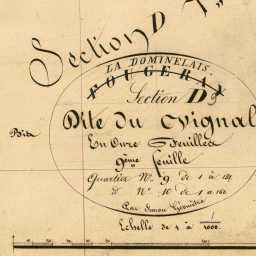 Section D
LA DOMINELAIS
FOUGERAY
Section D
Dite du Vignal
En Onze Feuilles
9ème feuille
Quartier No. 9. de 1 à
d No. 10 de 1 à
Par Simon Géomètre
Echelle de 1 à